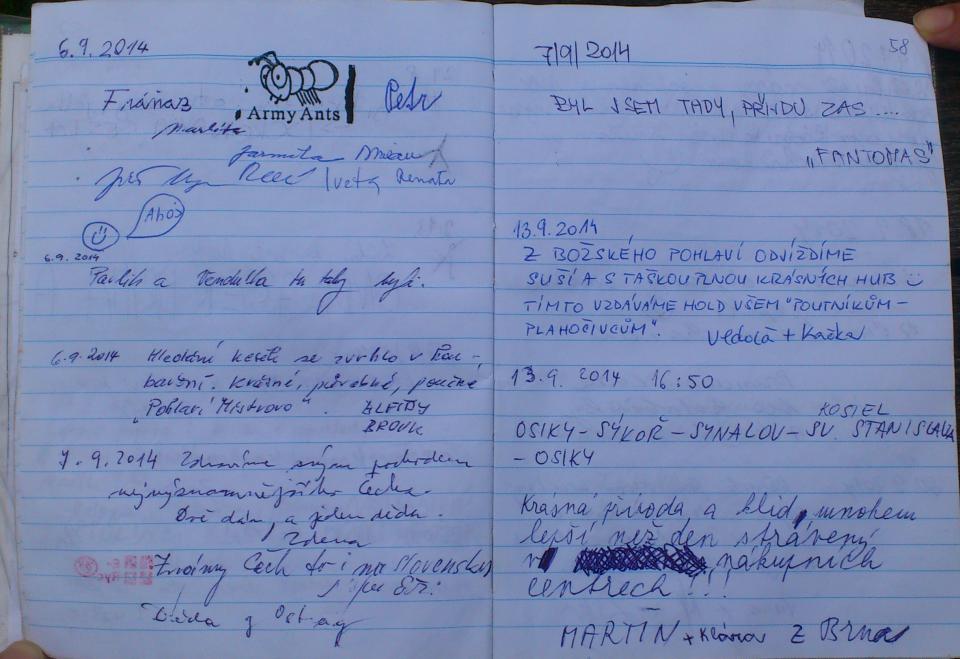 6.9.2014
Army Ants
Petr
Markéta
Jarmila
Jiří Iveta Renata
Ahoj
6.9.2014
Pavlík a Vendulka tu taky byli.
6.9.2014 Hledání kešek se zvrhlo v
krásné, půvabné, poučné
"Pohlaví Mistrovo".
BROUK
7.9.2014 Zdravíme
nejvýznamnějšího Čecha.
Dvě dámy, a jeden děda.
Zdena
Známý Čech to i na Slovensku
Děda z
58
7/9/2014
BYL JSEM TADY, PŘÍJDU ZAS ....
„FANTOMAS"
13.9.2014
Z BOŽSKÉHO POHLAVÍ ODVÍŽDÍME
SUŠÍ A S TAŠKOU PLNOU KRÁSNÝCH HUB
TÍMTO VZDÁVÁME HOLD VŠEM "POUTNÍKŮM-
PLAHOČIVCŮM".
+ Kačka
13.9. 2014 16:50
KOSTEL
OSIKY - SÝKOŘ - SYNALOV - SV. STANISLAVA
- OSIKY
Krásná příroda a klid, mnohem
lepší než den strávený
v nákupních
centrech!!!
MARTIN + Klára Z Brna